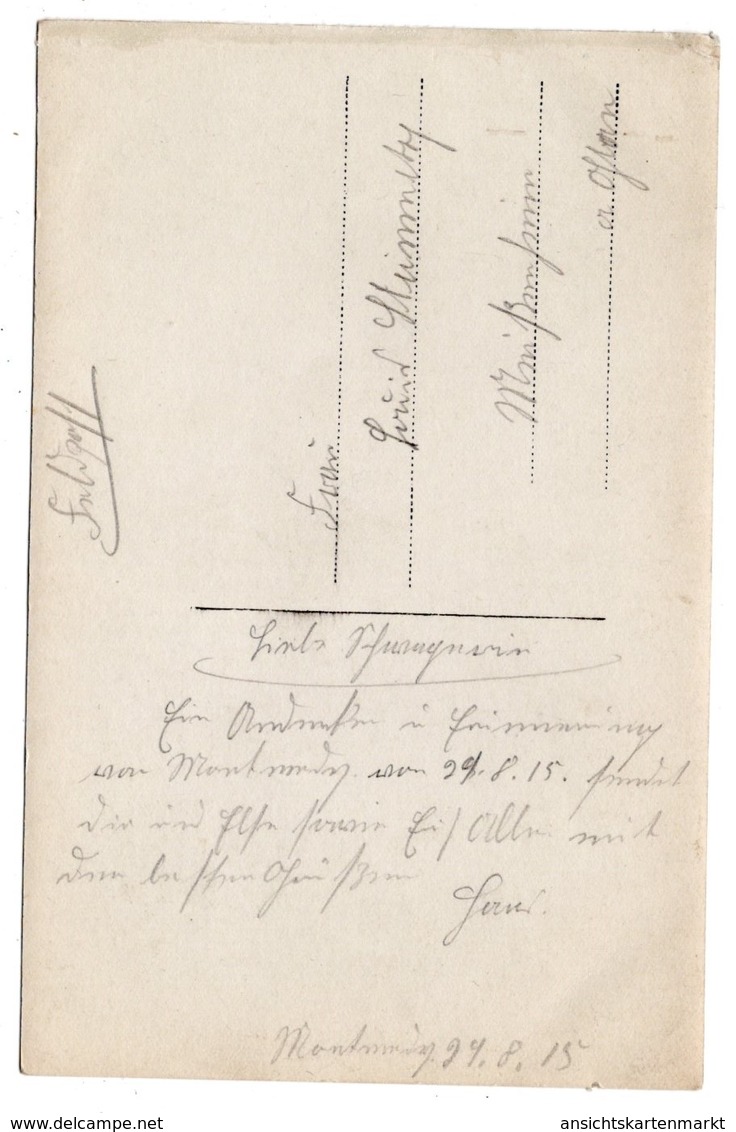 Feldpost
Frau
Louis
Meißenheim
a
Liebe Schwägerin
Ein Andenken u Erinnerung
von Montmedy von 29.8.15. sendet
Dir und Else sowie Alle mit
den besten Grüßen
Hans.
Montmedy. 29. 8. 15
ansichtskartenmarkt